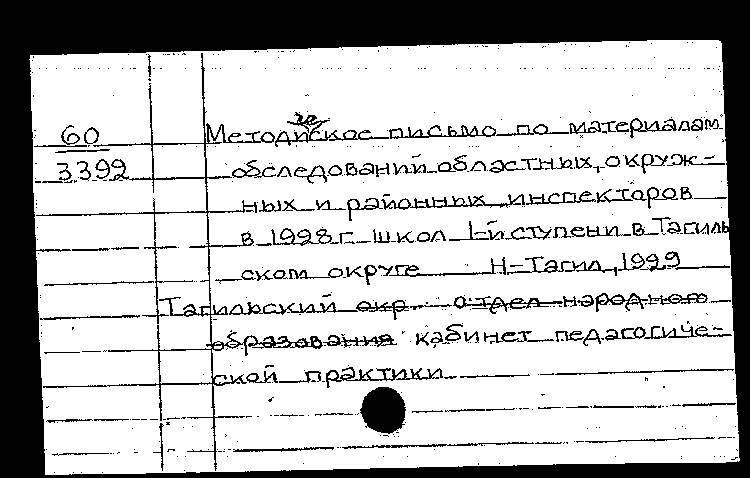 60
3392
Методическое письмо по материалам
обследований областных, окруж-
ных и районных инспекторов
в 1928 г. школ I-й ступени в Тагиль
ском округе Н-Тагил, 1929
Тагильский окр. отдел народного
образования кабинет педагогиче-
ской практики